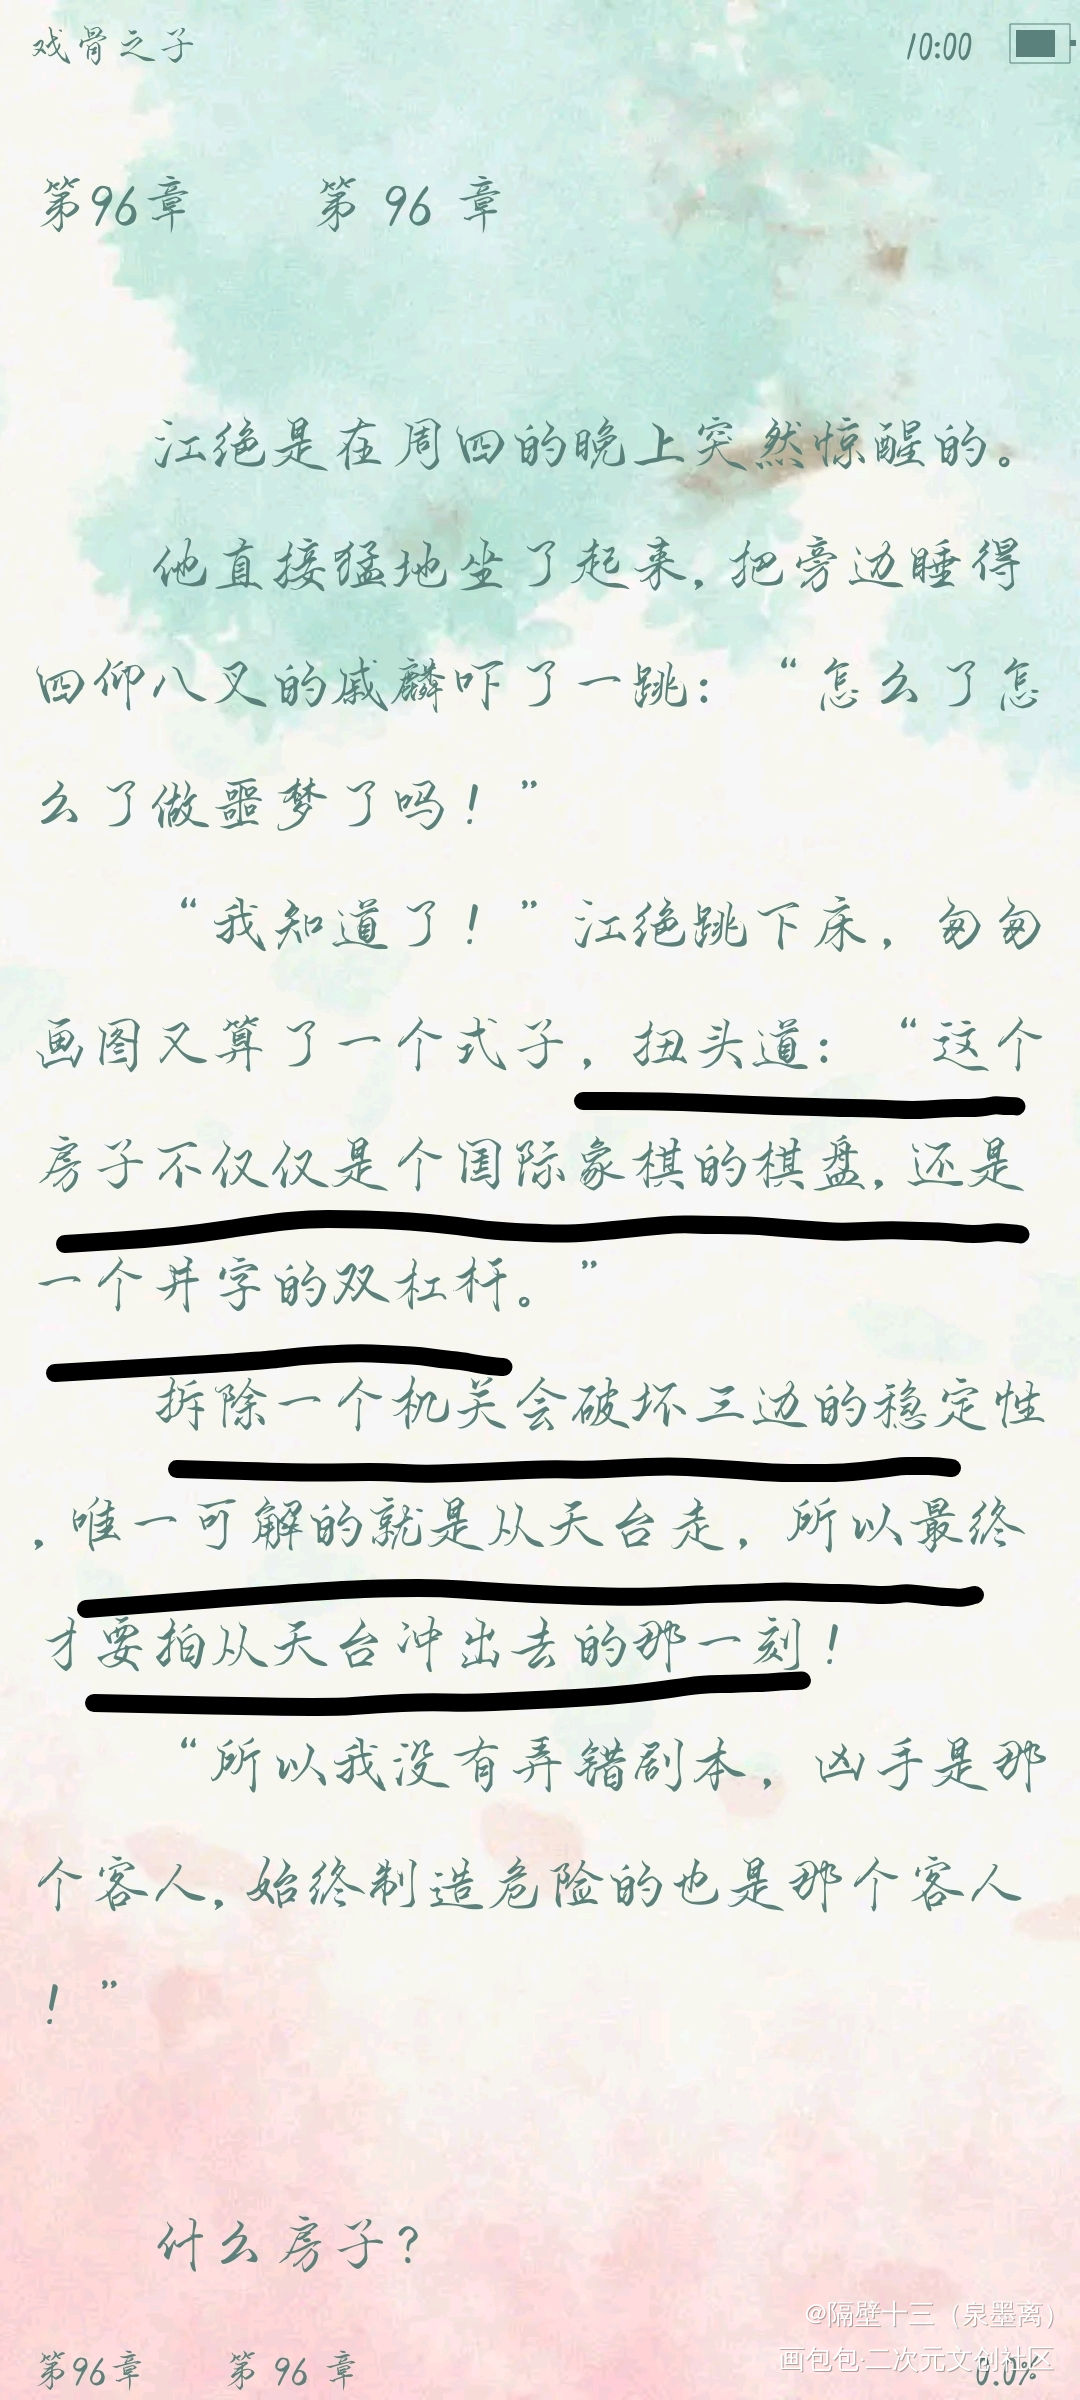 戏骨之子 10:00
第96章 第 96 章
江绝是在周四的晚上突然惊醒的。
他直接猛地坐了起来，把旁边睡得
四仰八叉的戚麟吓了一跳：“怎么了怎
么了做噩梦了吗！”
“我知道了！”江绝跳下床，匆匆
画图又算了一个式子，扭头道：“这个
房子不仅仅是个国际象棋的棋盘，还是
一个井字的双杠杆。”
拆除一个机关会破坏三边的稳定性
，唯一可解的就是从天台走，所以最终
才要拍从天台冲出去的那一刻！
“所以我没有弄错剧本，凶手是那
个客人，始终制造危险的也是那个客人
！”
什么房子？
@隔壁十三（泉墨离）
画包包·二次元文创社区
第96章 第 96 章 0.0%